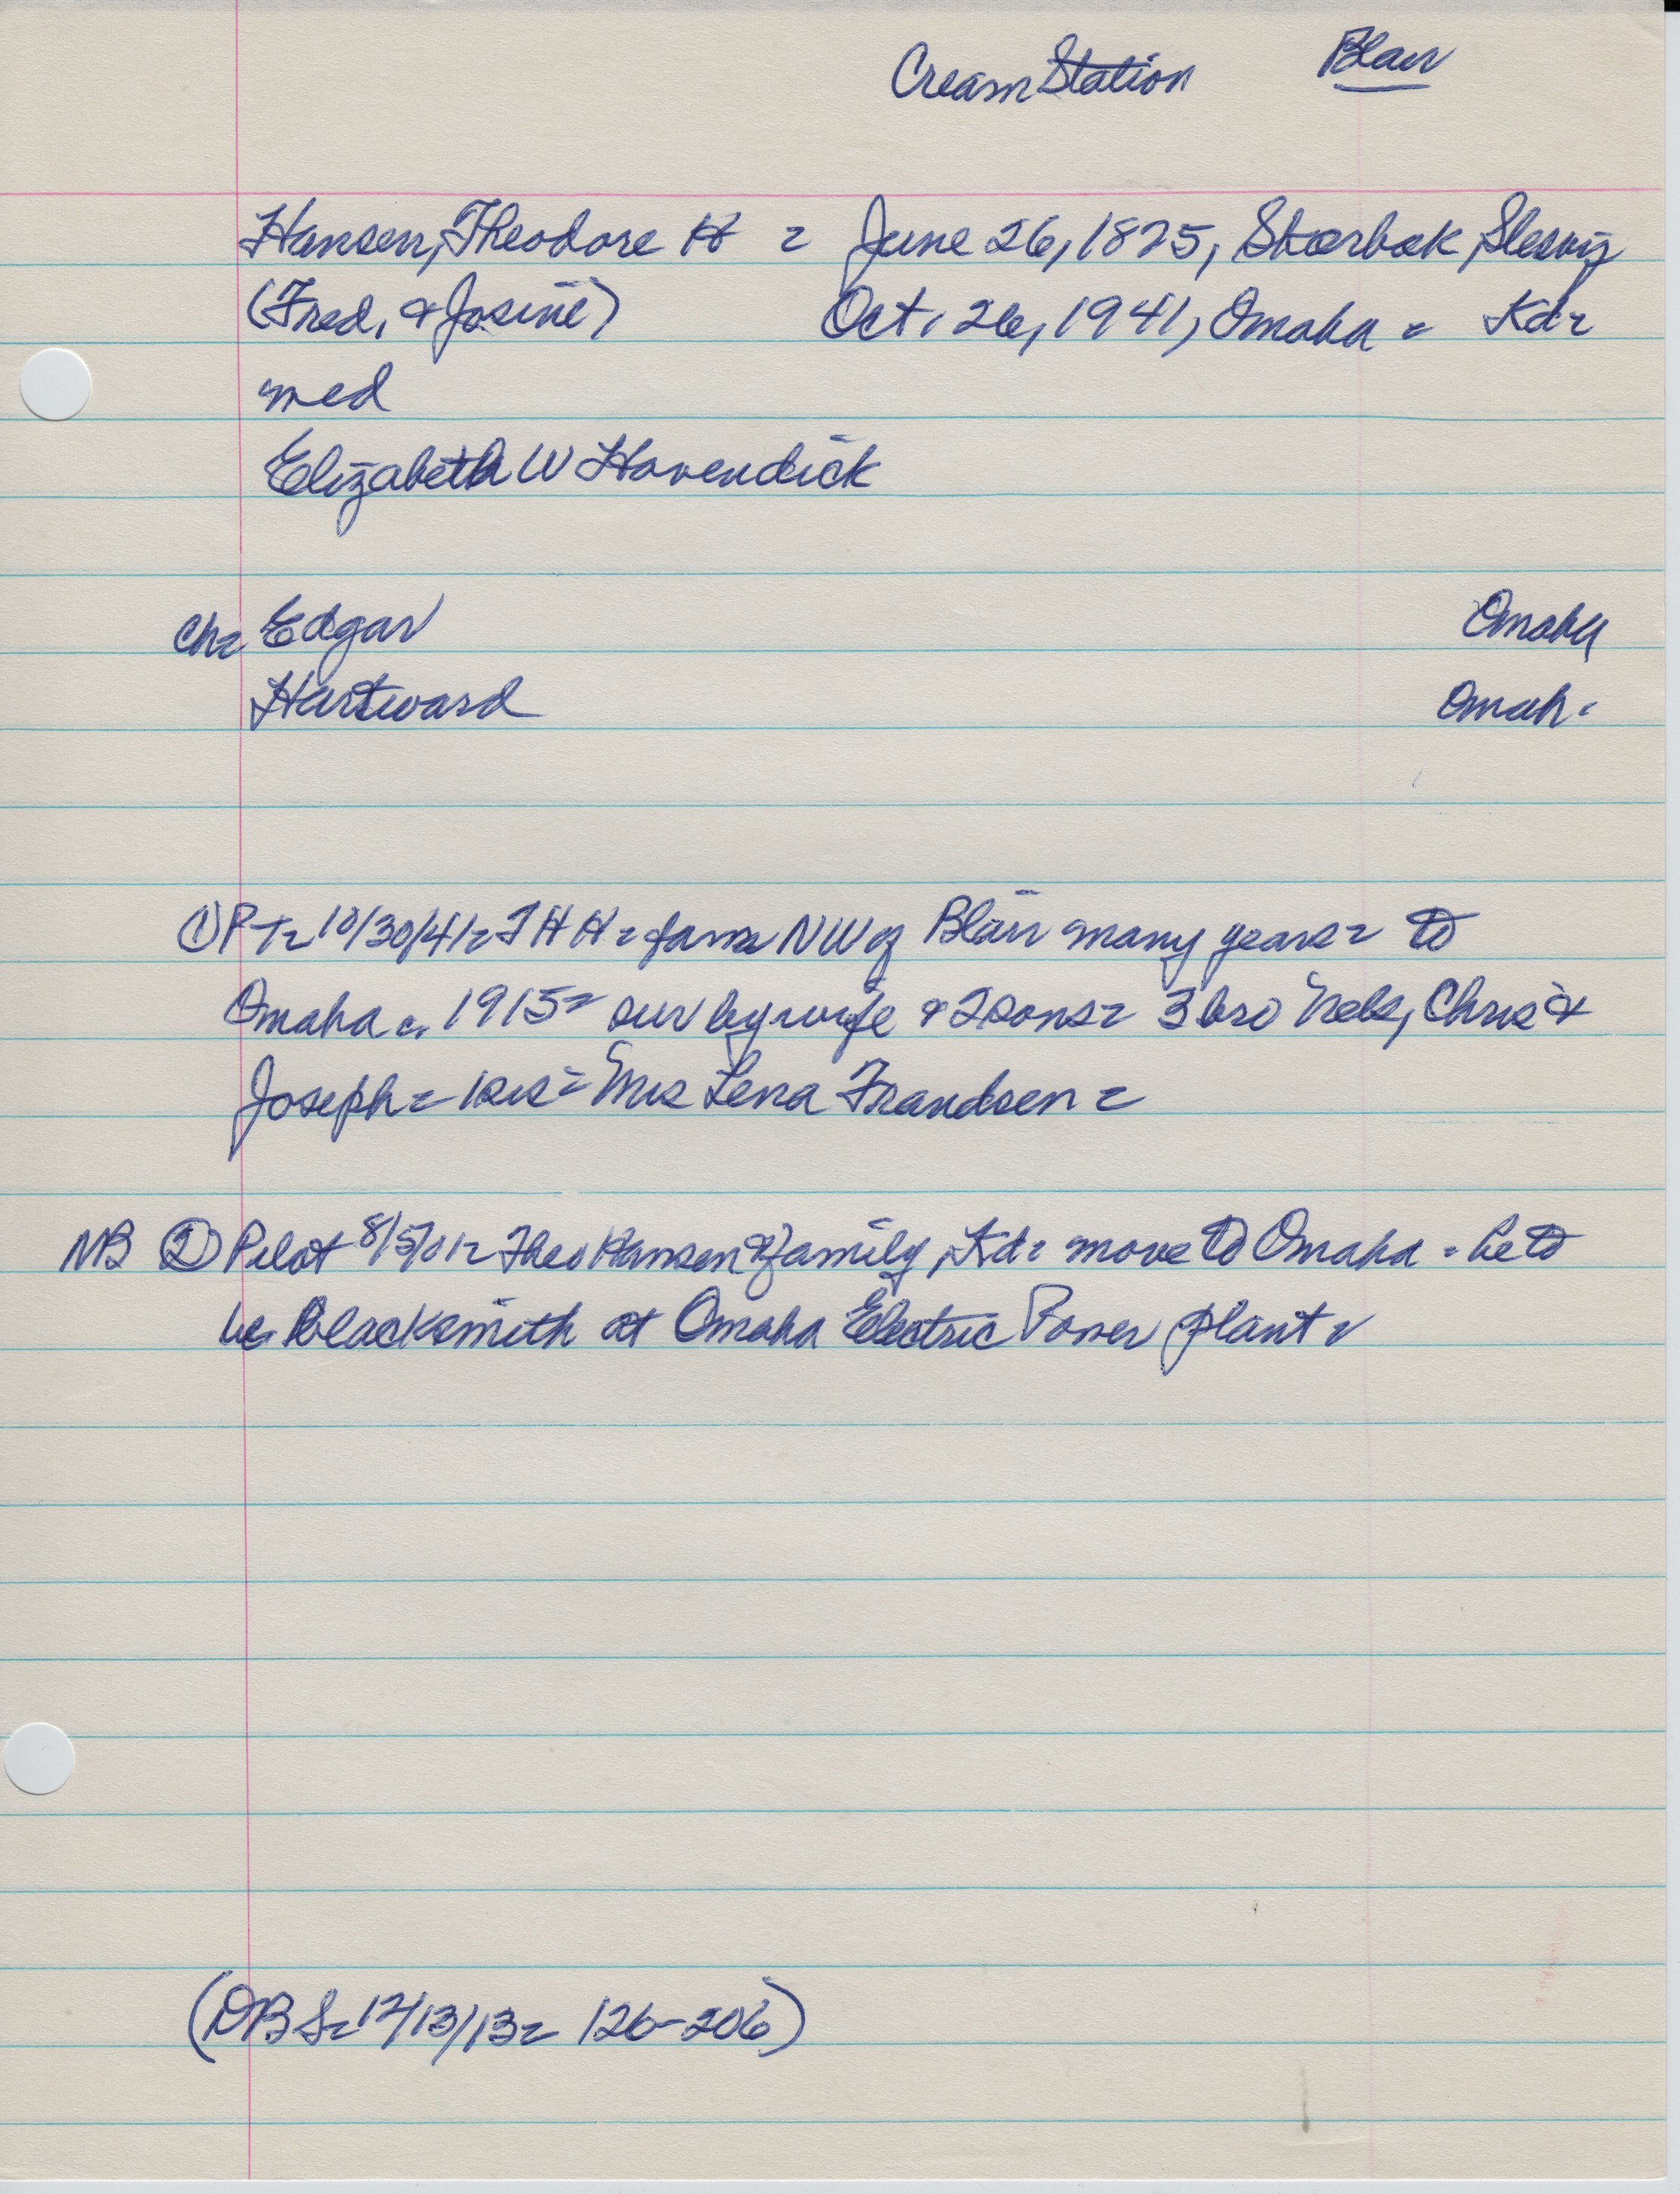 Cream Station Blair
Hansen, Theodore H = June 26, 1875, Skærbæk, Slesvig
(Fred. & Josine) Oct. 26, 1941, Omaha = Kd=
med
Elizabeth W Hovendick
Ch= Edgar Omaha
Hartward Omah.
① PT= 10/30/41= THH= farm NW of Blair many years= to
Omaha c. 1915= sur by wife & 2 sons= 3 bro Nels, Chris &
Joseph= 1 sis= Mrs Lena Frandsen=
NB ② Pilot 8/5/01= Theo Hansen & family, Kd= move to Omaha = he to
be blacksmith at Omaha Electric Power plant=
(DBS= 12/13/13= 126-206)